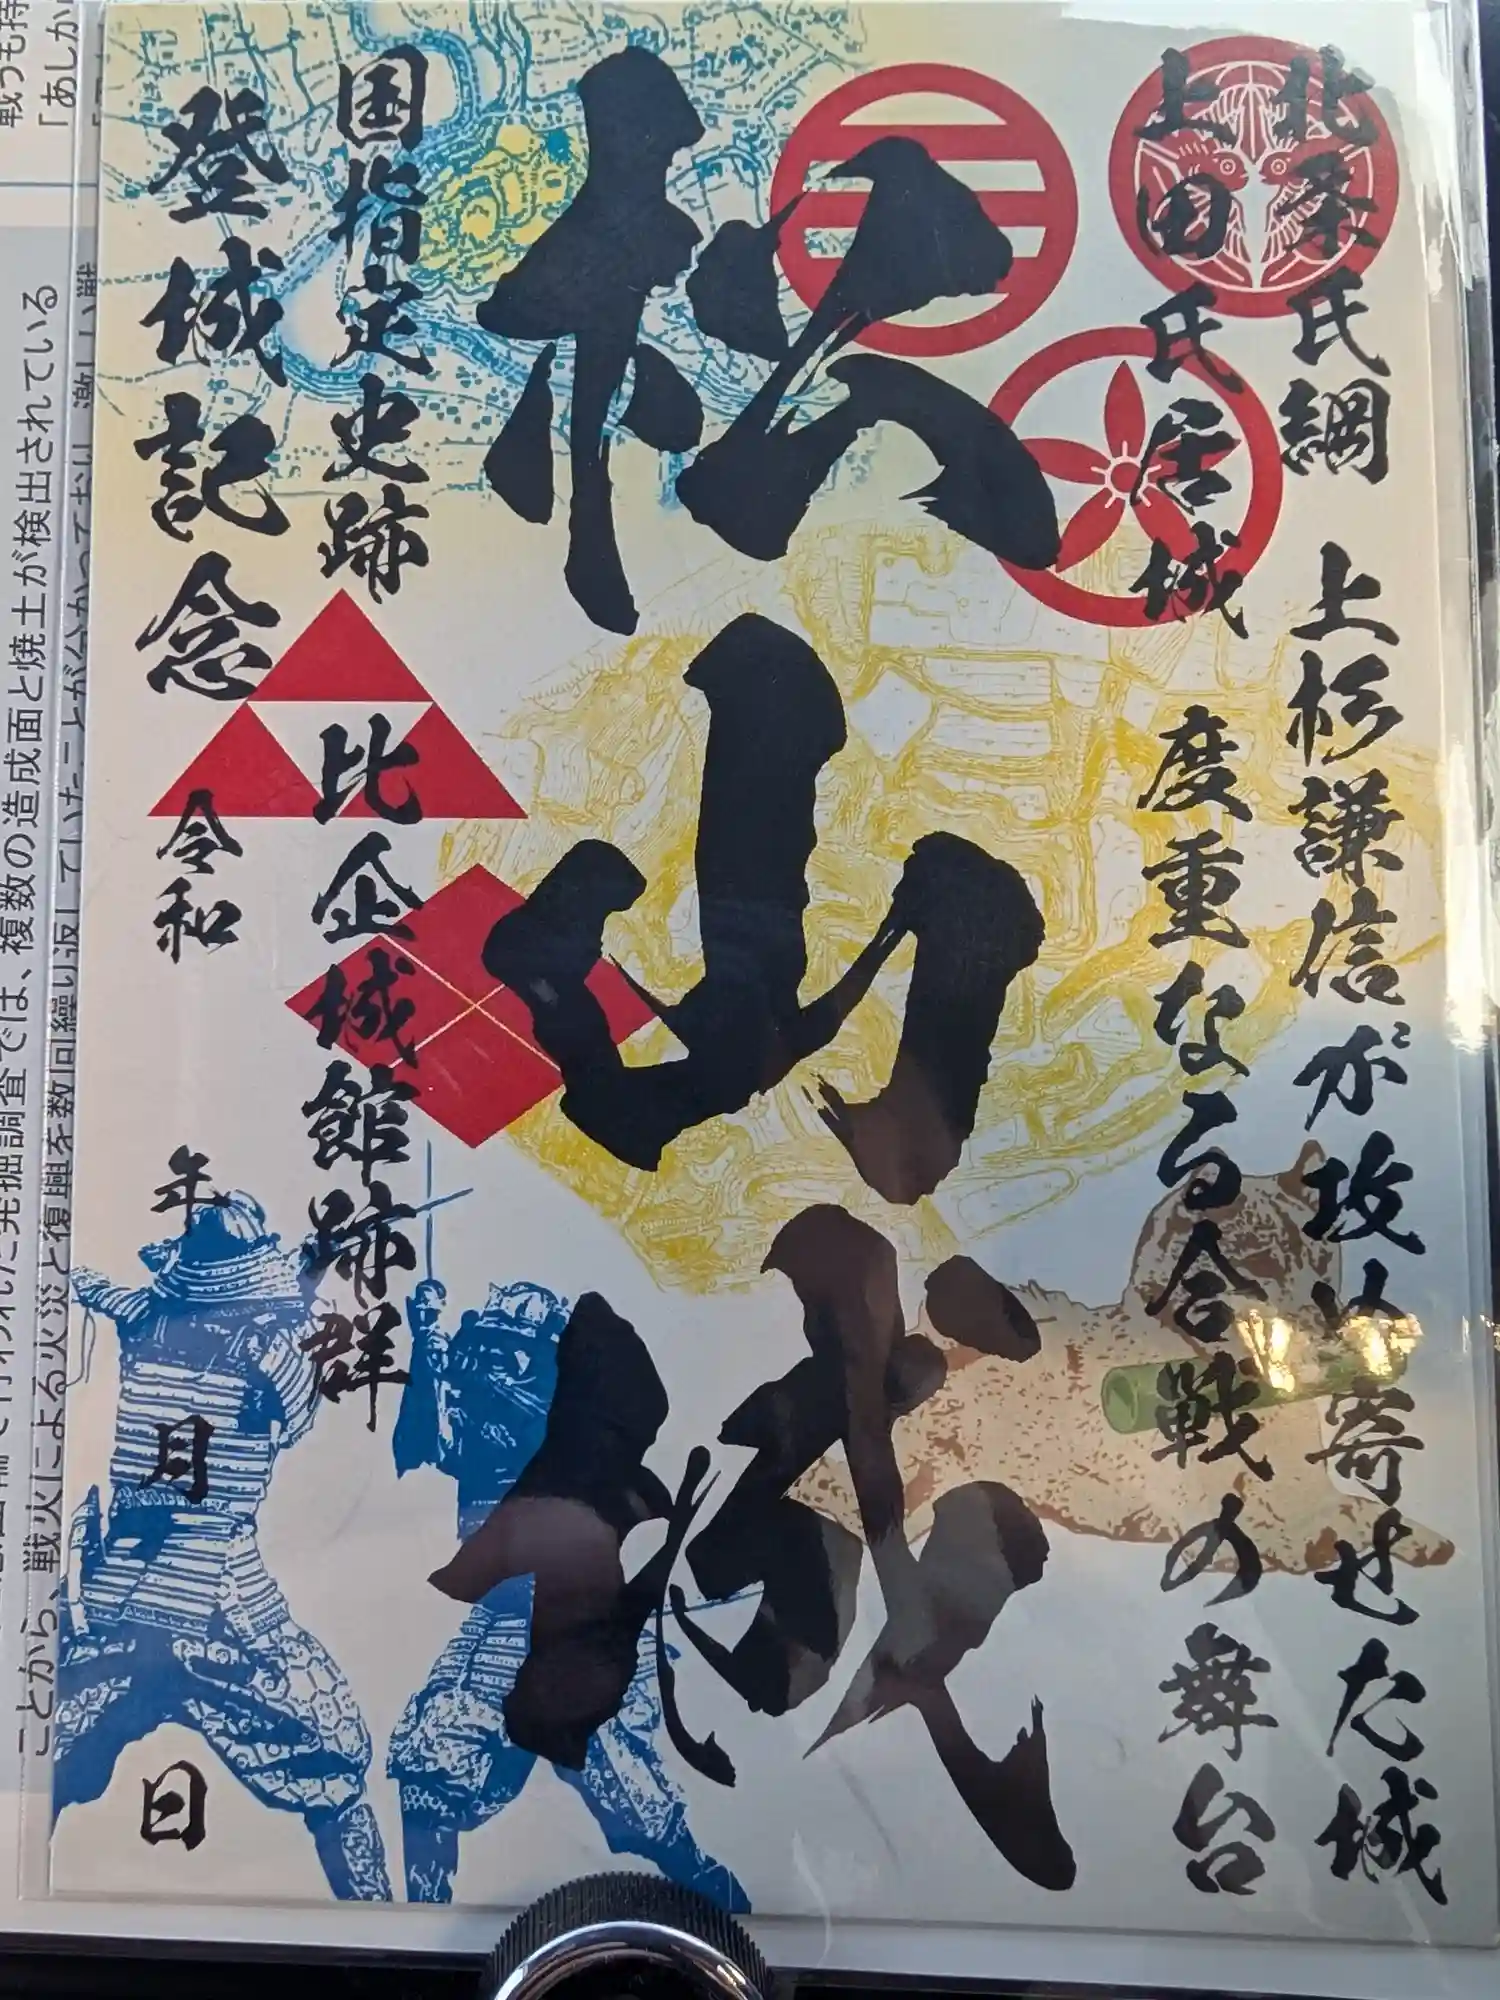 北条氏綱　上杉謙信が攻め寄せた城
上田氏居城　度重なる合戦の舞台
松山城
国指定史跡　比企城館跡群
登城記念　令和　年　月　日
検出されている
複数の造成面と焼土が
ことから、戦火による火災と復興を数回繰り返していたことが分かっており、激しい戦